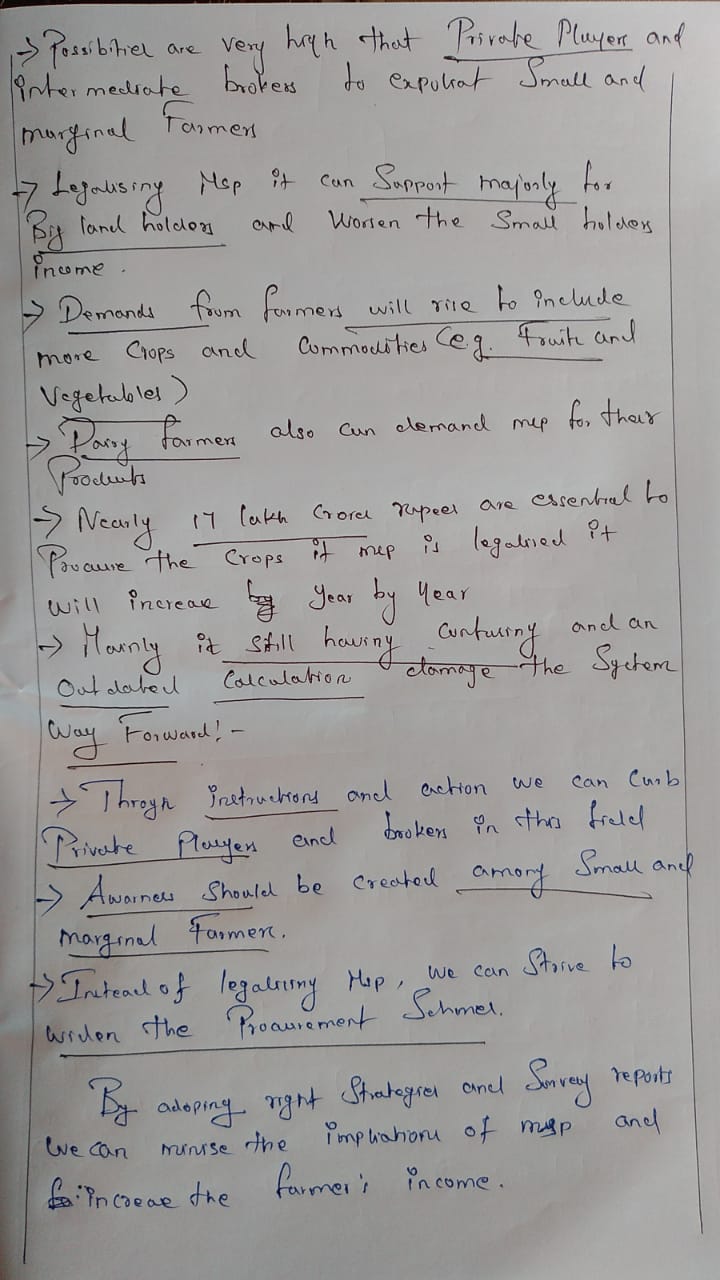 → Possibities are very high that Private Players and
intermediate brokers to expoliat Small and
marginal Farmers
→ Legalising Msp it can Support majorly for
Big land holders and Worsen the Small holders
income.
→ Demands from farmers will rise to include
more Crops and Commodities (e.g. Fruits and
Vegetables)
→ Dairy farmers also can demand msp for their
Products
→ Nearly 17 lakh Crores rupees are essential to
Procure the Crops if msp is legalised it
will increase year by year
→ Mainly it still having confusing and an
Outdated Calculation damage the System
Way Forward! -
→ Through instructions and action we can Curb
Private Players and brokers in this field
→ Awarness Should be created among Small and
marginal Farmers.
→ Instead of legalising Msp, we can Strive to
widen the Procurement Schmes.
By adoping right Strategies and Survey reports
we can minise the impliations of msp and
increase the farmer's income.